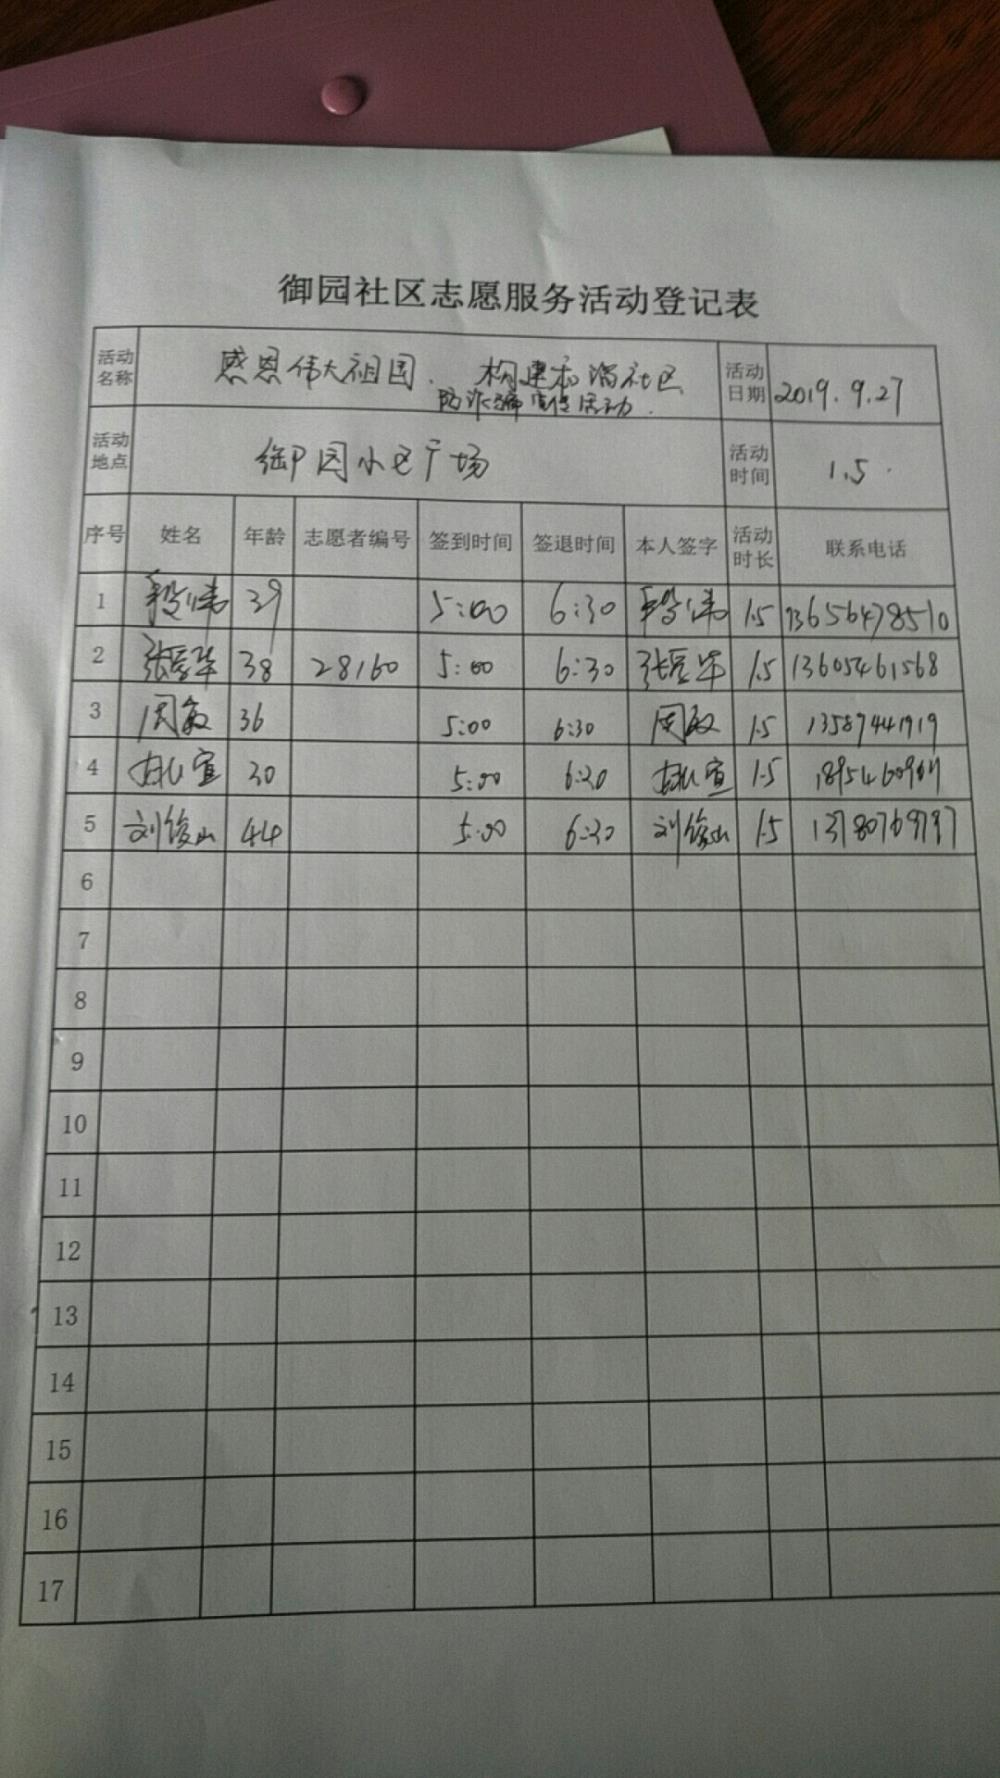 御园社区志愿服务活动登记表
活动名称 感恩伟大祖国、构建和谐社区 防诈骗宣传活动. 活动日期 2019.9.27
活动地点 御园小区广场 活动时间 1.5
序号 姓名 年龄 志愿者编号 签到时间 签退时间 本人签字 活动时长 联系电话
1 段伟 39 5:00 6:30 段伟 1.5 13656478510
2 38 28160 5:00 6:30 1.5 13605461568
3 周敏 36 5:00 6:30 周敏 1.5 13589441919
4 30 5:00 6:30 1.5
5 刘俊山 44 5:00 6:30 刘俊山 1.5 13780769797
6
7
8
9
10
11
12
13
14
15
16
17